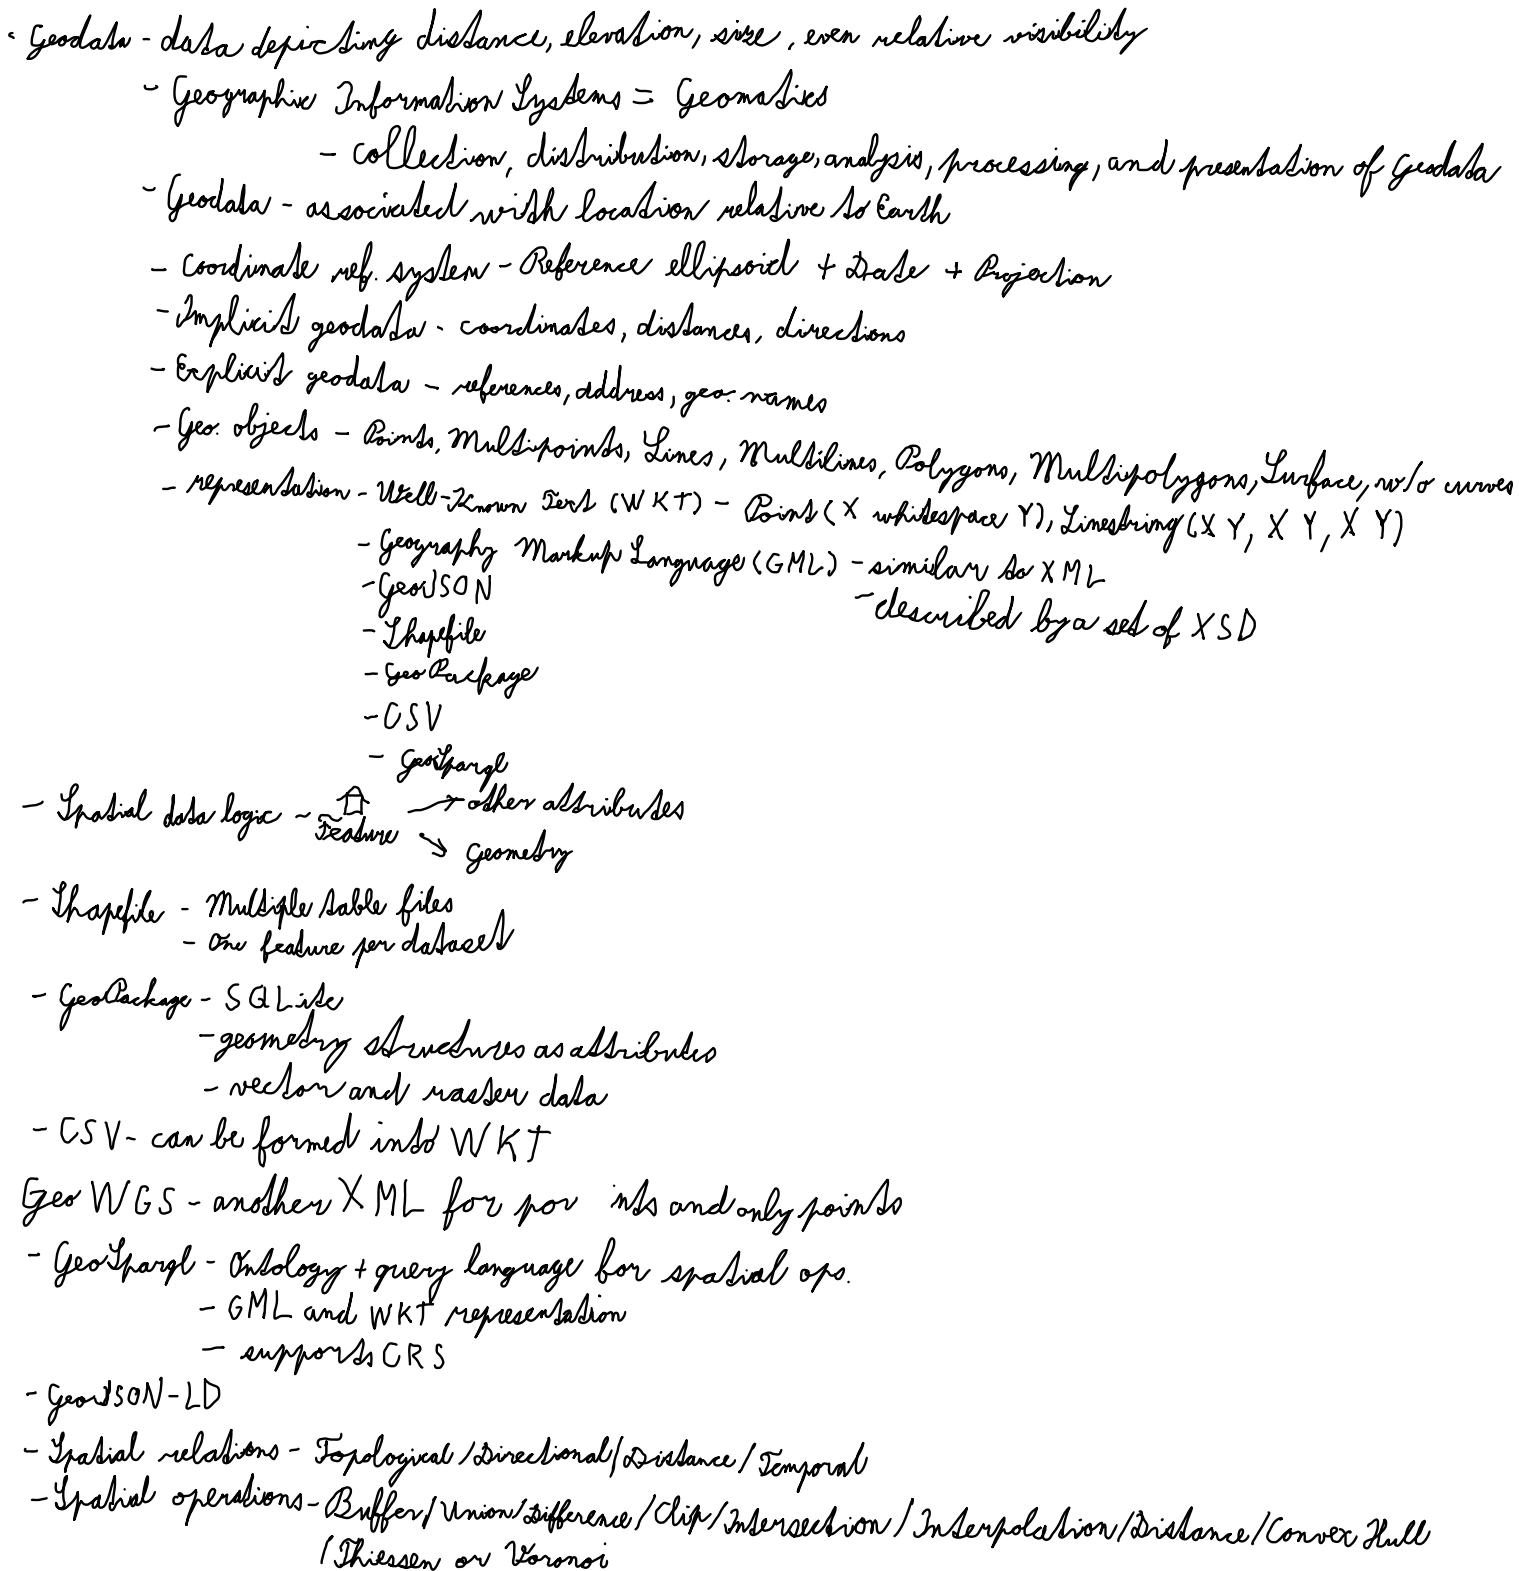 · Geodata - data depicting distance, elevation, size, even relative visibility
- Geographic Information Systems = Geomatics
- collection, distribution, storage, analysis, processing, and presentation of Geodata
- Geodata - associated with location relative to Earth
- Coordinate ref. system - Reference ellipsoid + Date + Projection
- Implicit geodata - coordinates, distances, directions
- Explicit geodata - references, address, geo. names
- Geo. objects - Points, Multipoints, Lines, Multilines, Polygons, Multipolygons, Surface, w/o curves
- representation - Well-Known Text (WKT) - Point (X whitespace Y), Linestring (X Y, X Y, X Y)
- Geography Markup Language (GML) - similar to XML
- described by a set of XSD
- GeoJSON
- Shapefile
- GeoPackage
- CSV
- GeoSparql
- Spatial data logic - Feature → other attributes
↘ Geometry
- Shapefile - Multiple table files
- One feature per dataset
- GeoPackage - SQLite
- geometry structures as attributes
- vector and raster data
- CSV - can be formed into WKT
Geo WGS - another XML for poi nts and only points
- GeoSparql - Ontology + query language for spatial ops.
- GML and WKT representation
- supports CRS
- GeoJSON-LD
- Spatial relations - Topological/Directional/Distance/Temporal
- Spatial operations - Buffer/Union/Difference/Clip/Intersection/Interpolation/Distance/Convex Hull
/Thiessen or Voronoi